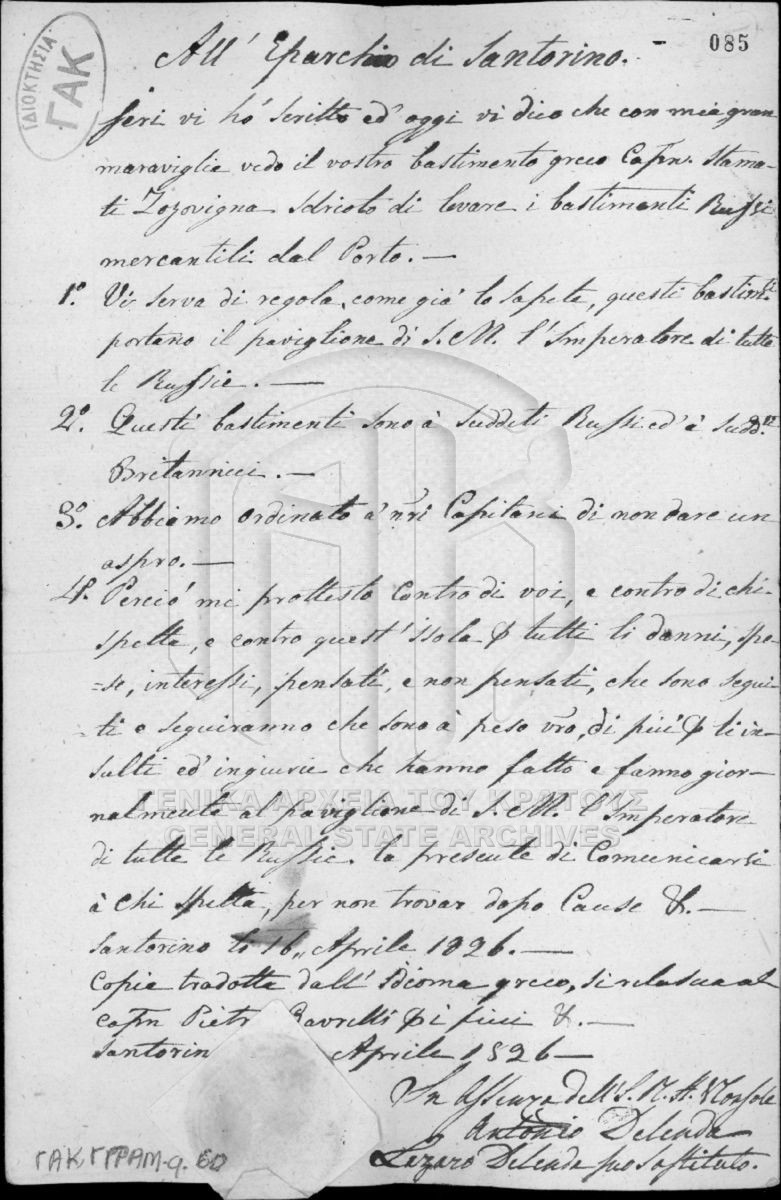 All' Eparchio di Santorino. -
085
ΙΔΙΟΚΤΗΣΙΑ
ΓΑΚ
Jeri vi hó scritto ed' oggi vi dico che con mia gran
maraviglia vedo il vostro bastimento greco Capn. Stama-
ti Zozovigna Idrioto di levare i bastimenti Russi
mercantili dal Porto. —
1º. Vi serva di regola, come giá lo sapete, questi bastimti
portano il paviglione di S. M. l'Imperatore di tutte
le Russie. —
2º. Questi bastimenti sono à sudditi Russi ed' à sudd.ti
Britannici. —
3º. Abbiamo ordinato a' nri Capitani di non dare un
aspro. —
4º. Perció mi prottesto contro di voi, e contro di chi
spetta, e contro quest' isola p tutti li danni, spe-
=se, interessi, pensati, e non pensati, che sono segui-
ti e seguiranno che sono à peso vro, di piú p li in-
sulti ed' ingiurie che hanno fatto e fanno gior-
nalmente al paviglione di S. M. l'Imperatore
di tutte le Russie. la presente di Comunicarsi
à chi spetta, per non trovar dopo Cause &. —
Santorino lo 16,, Aprile 1826. —
Copia tradotta dall' Idioma greco, si rilascia al
Capn Pietr Bavrelli p i fini &. —
Santorin Aprile 1826 —
In Assenza dell' S. R. A. VConsole
Antonio Delenda
Lazaro Delenda suo sostituto.
ΓΕΝΙΚΑ ΑΡΧΕΙΑ ΤΟΥ ΚΡΑΤΟΥΣ
GENERAL STATE ARCHIVES
ΓΑΚ ΓΓΡΑΜ-φ. 60